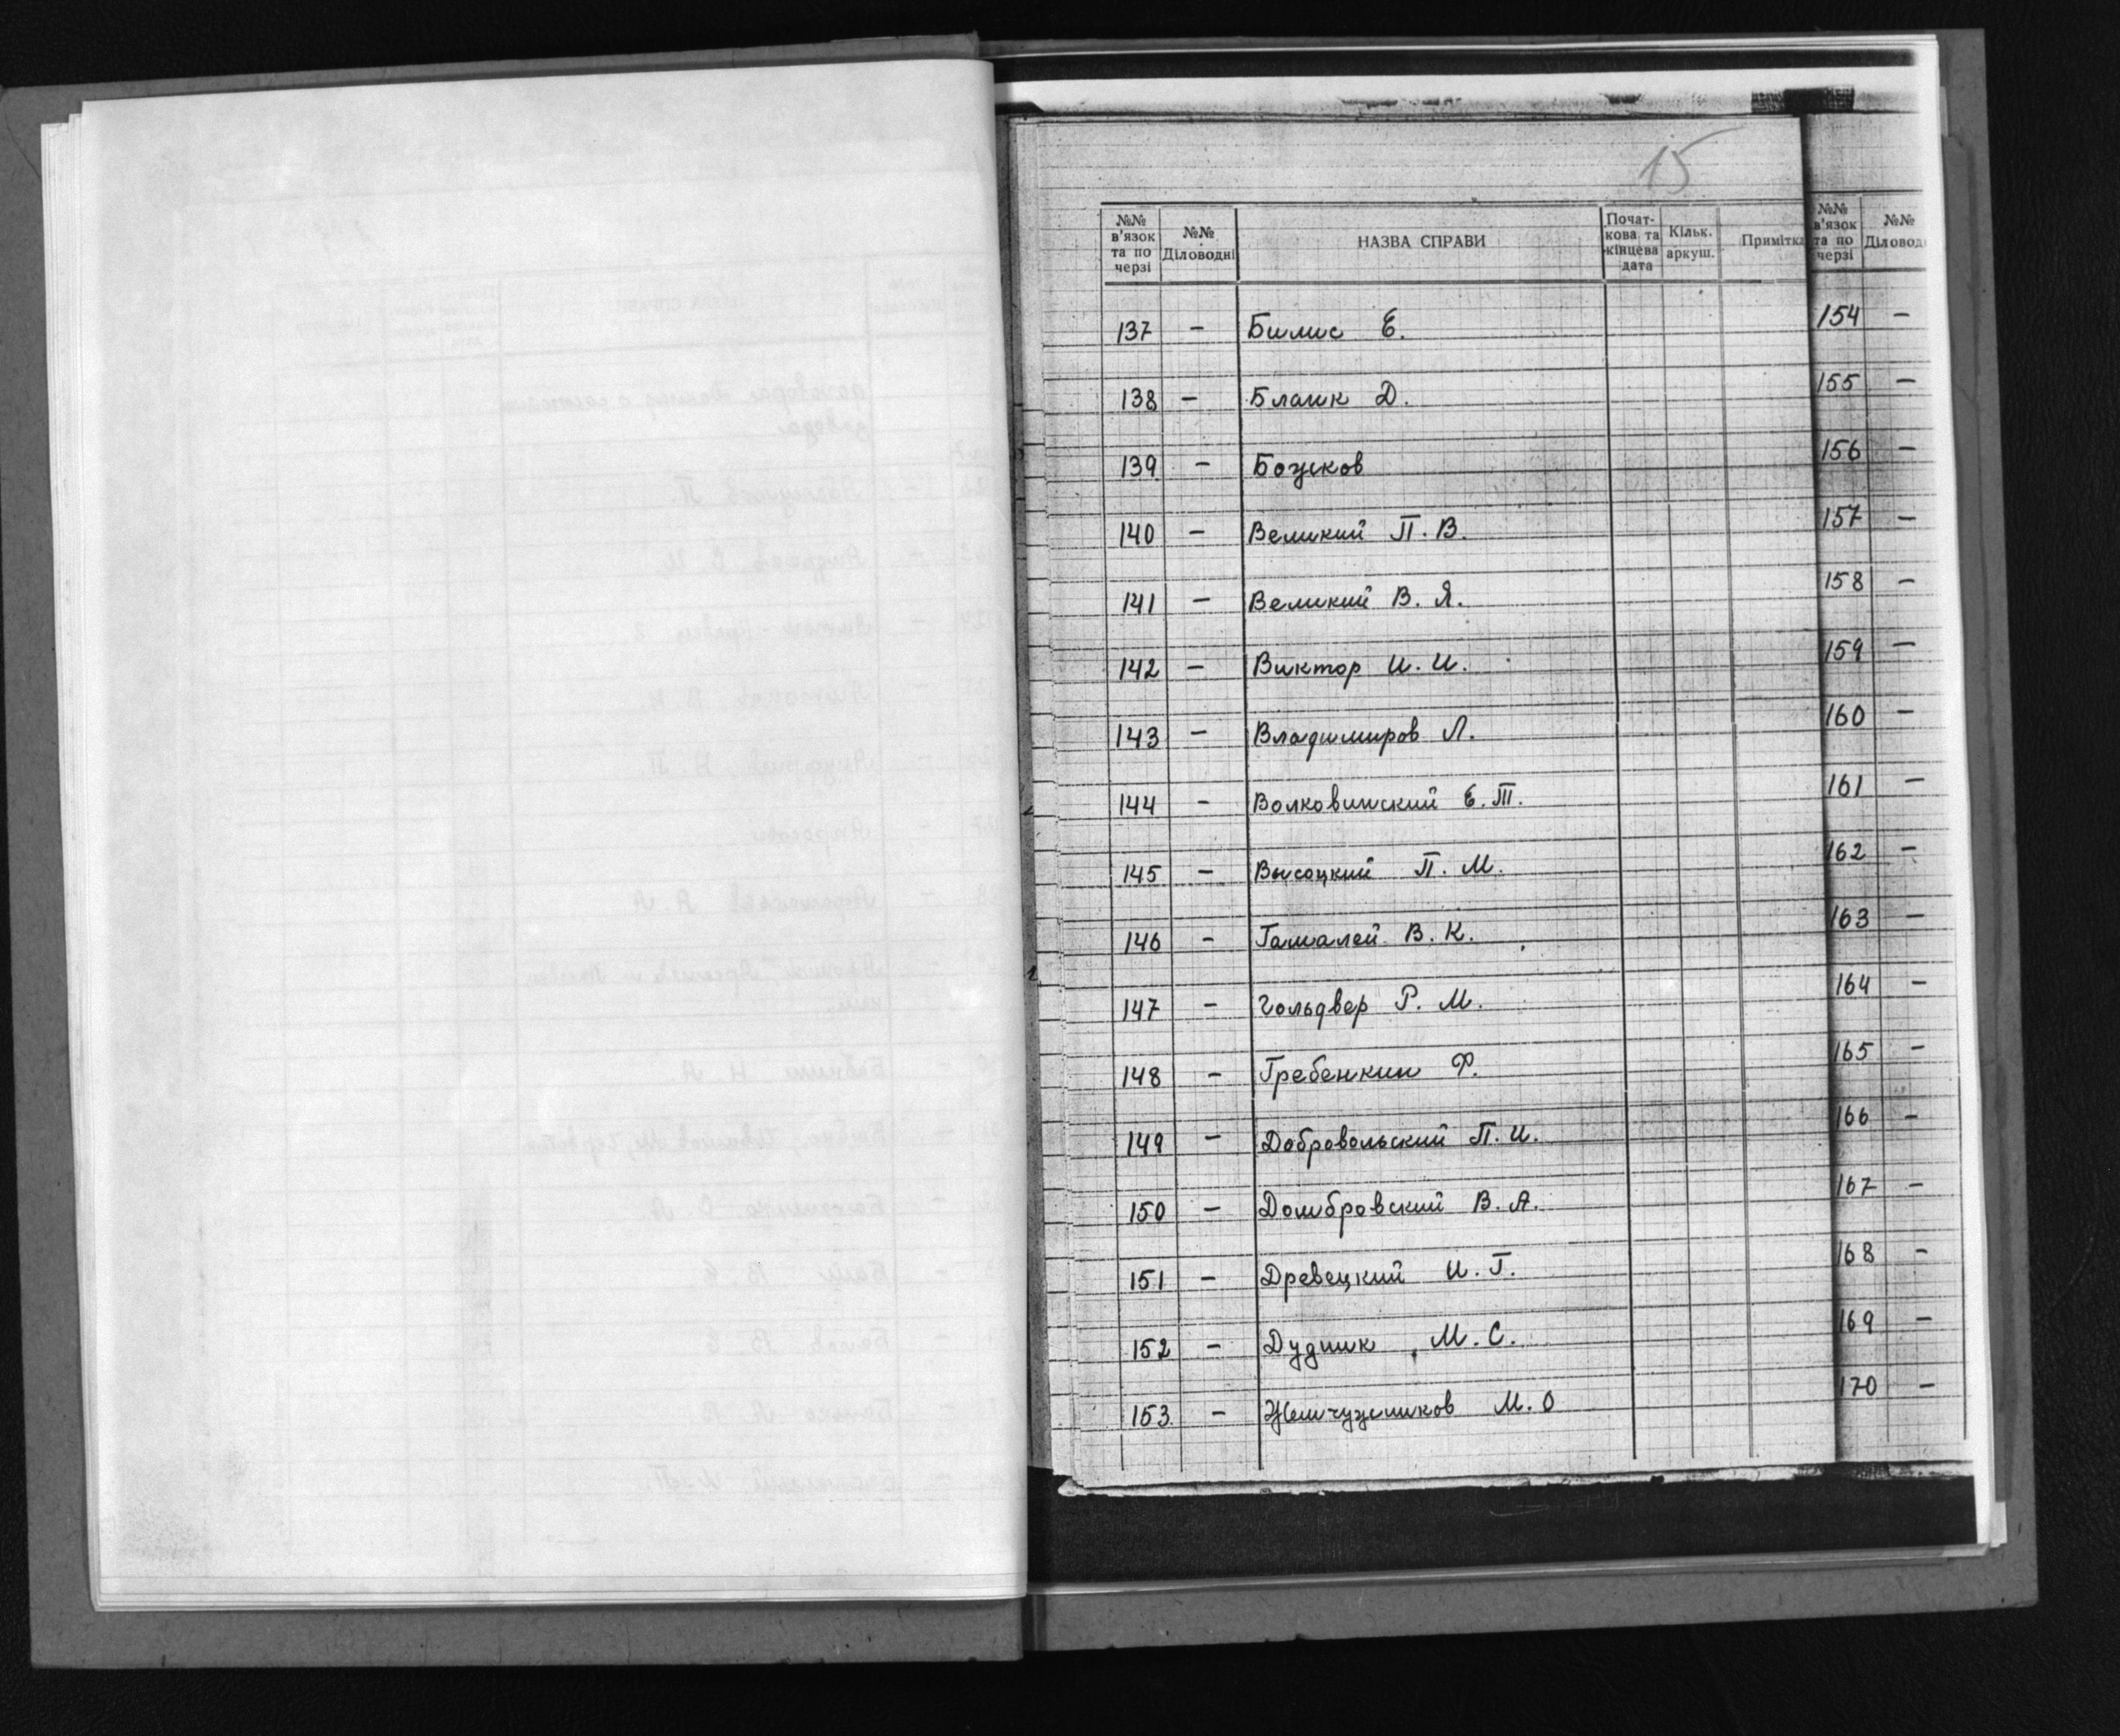 15
№№ в'язок та по черзі №№ Діловодні НАЗВА СПРАВИ Почат-кова та кінцева дата Кільк. аркуш. Примітка
137 – Билис Е.
138 – Бланк Д.
139 –
140 – Великий П. В.
141 – Великий В. Я.
142 – Виктор И. И.
143 – Владимиров Л.
144 – Волковинский Е. Т.
145 – Высоцкий П. М.
146 – Гамалей В. К.
147 – Гольдвер Р. М.
148 – Гребенкин Ф.
149 – Добровольский П. И.
150 – Домбровский В. А.
151 – Древецкий И. Г.
152 – Дудник М. С.
153 – Жемчужников М. О
№№ в'язок та по черзі №№ Діловод
154 –
155 –
156 –
157 –
158 –
159 –
160 –
161 –
162 –
163 –
164 –
165 –
166 –
167 –
168 –
169 –
170 –